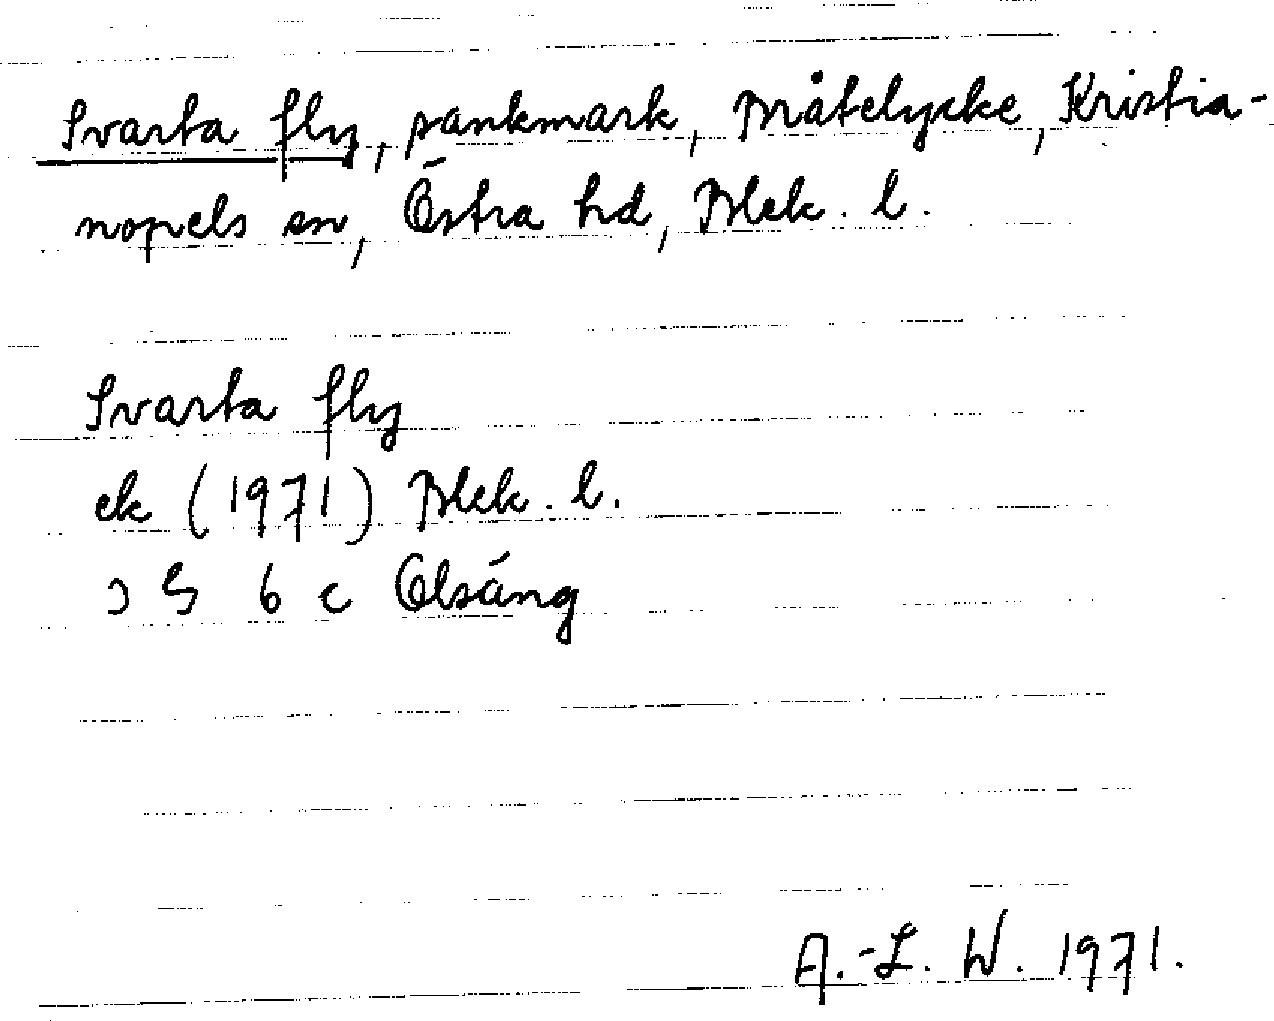 Svarta fly, sankmark, Bråtelycke, Kristia-
nopels sn, Östra hd, Blek. l.
Svarta fly
ek (1971) Blek. l.
3 G 6 c Olsäng
A.-L. W. 1971.